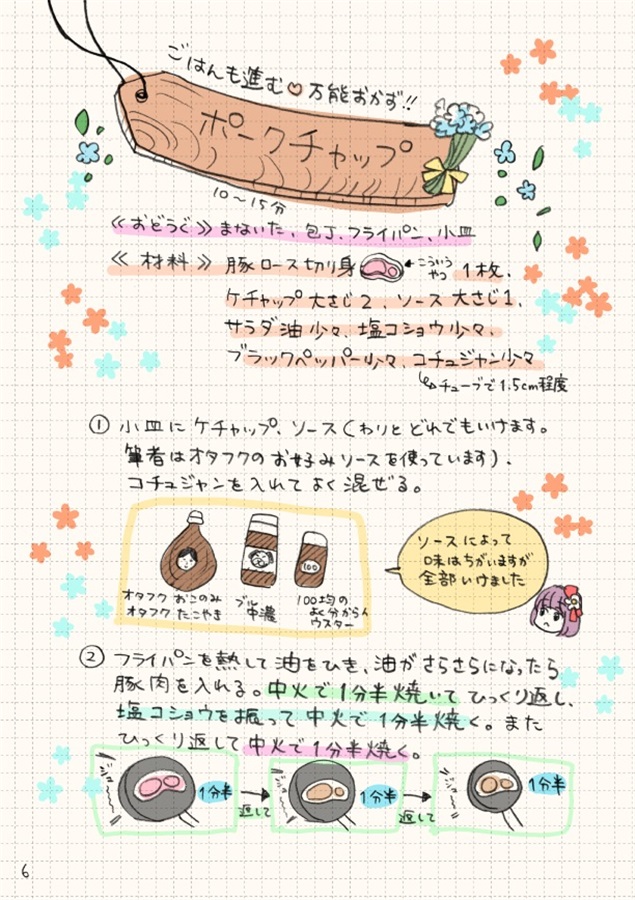 ごはんも進む♡万能おかず!!
ポークチャップ
10〜15分
≪おどうぐ≫まないた、包丁、フライパン、小皿
≪材料≫豚ロース切り身 ←こういうやつ 1枚、
ケチャップ大さじ2、ソース大さじ1、
サラダ油少々、塩コショウ少々、
ブラックペッパー少々、コチュジャン少々
チューブで1.5cm程度
①小皿にケチャップ、ソース(わりとどれでもいけます。
筆者はオタフクのお好みソースを使っています)、
コチュジャンを入れてよく混ぜる。
100
オタフク おこのみ
オタフク たこやき
ブル中濃
100均の
よく分からん
ウスター
ソースによって
味はちがいますが
全部いけました
②フライパンを熱して油をひき、油がさらさらになったら
豚肉を入れる。中火で1分半焼いてひっくり返し、
塩コショウを振って中火で1分半焼く。また
ひっくり返して中火で1分半焼く。
1分半
→
返して
1分半
→
返して
1分半
6